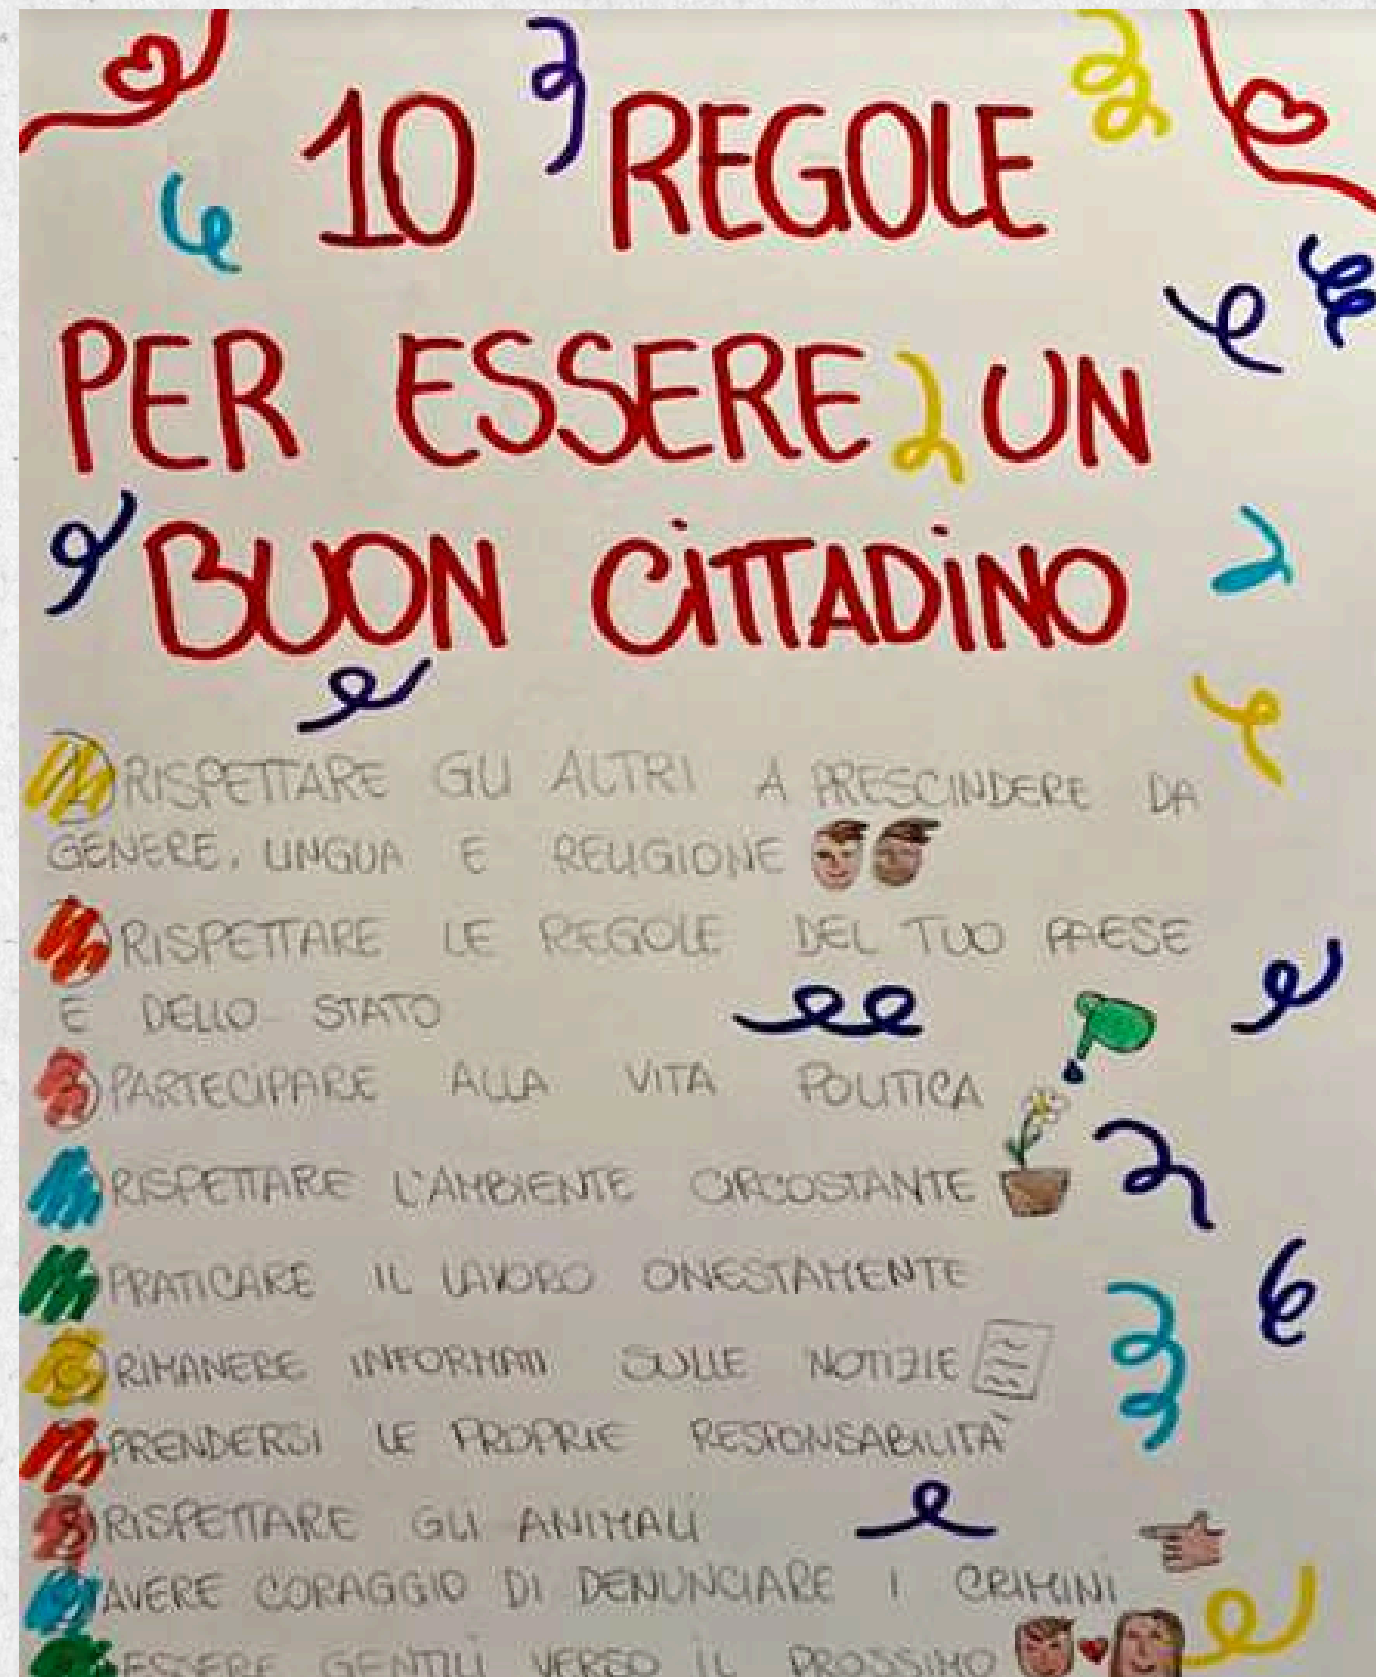 10 REGOLE
PER ESSERE UN
BUON CITTADINO
1) RISPETTARE GLI ALTRI A PRESCINDERE DA
GENERE, LINGUA E RELIGIONE
RISPETTARE LE REGOLE DEL TUO PAESE
E DELLO STATO
3) PARTECIPARE ALLA VITA POLITICA
RISPETTARE L'AMBIENTE CIRCOSTANTE
PRATICARE IL LAVORO ONESTAMENTE
6) RIMANERE INFORMATI SULLE NOTIZIE
PRENDERSI LE PROPRIE RESPONSABILITA'
8) RISPETTARE GLI ANIMALI
AVERE CORAGGIO DI DENUNCIARE I CRIMINI
ESSERE GENTILI VERSO IL PROSSIMO